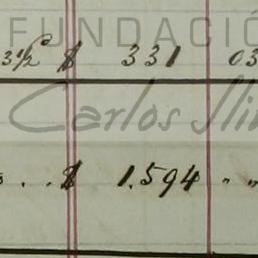 FUNDACIÓ
3 1/2 c $ 331 03
Carlos
. . $ 1.594 " "